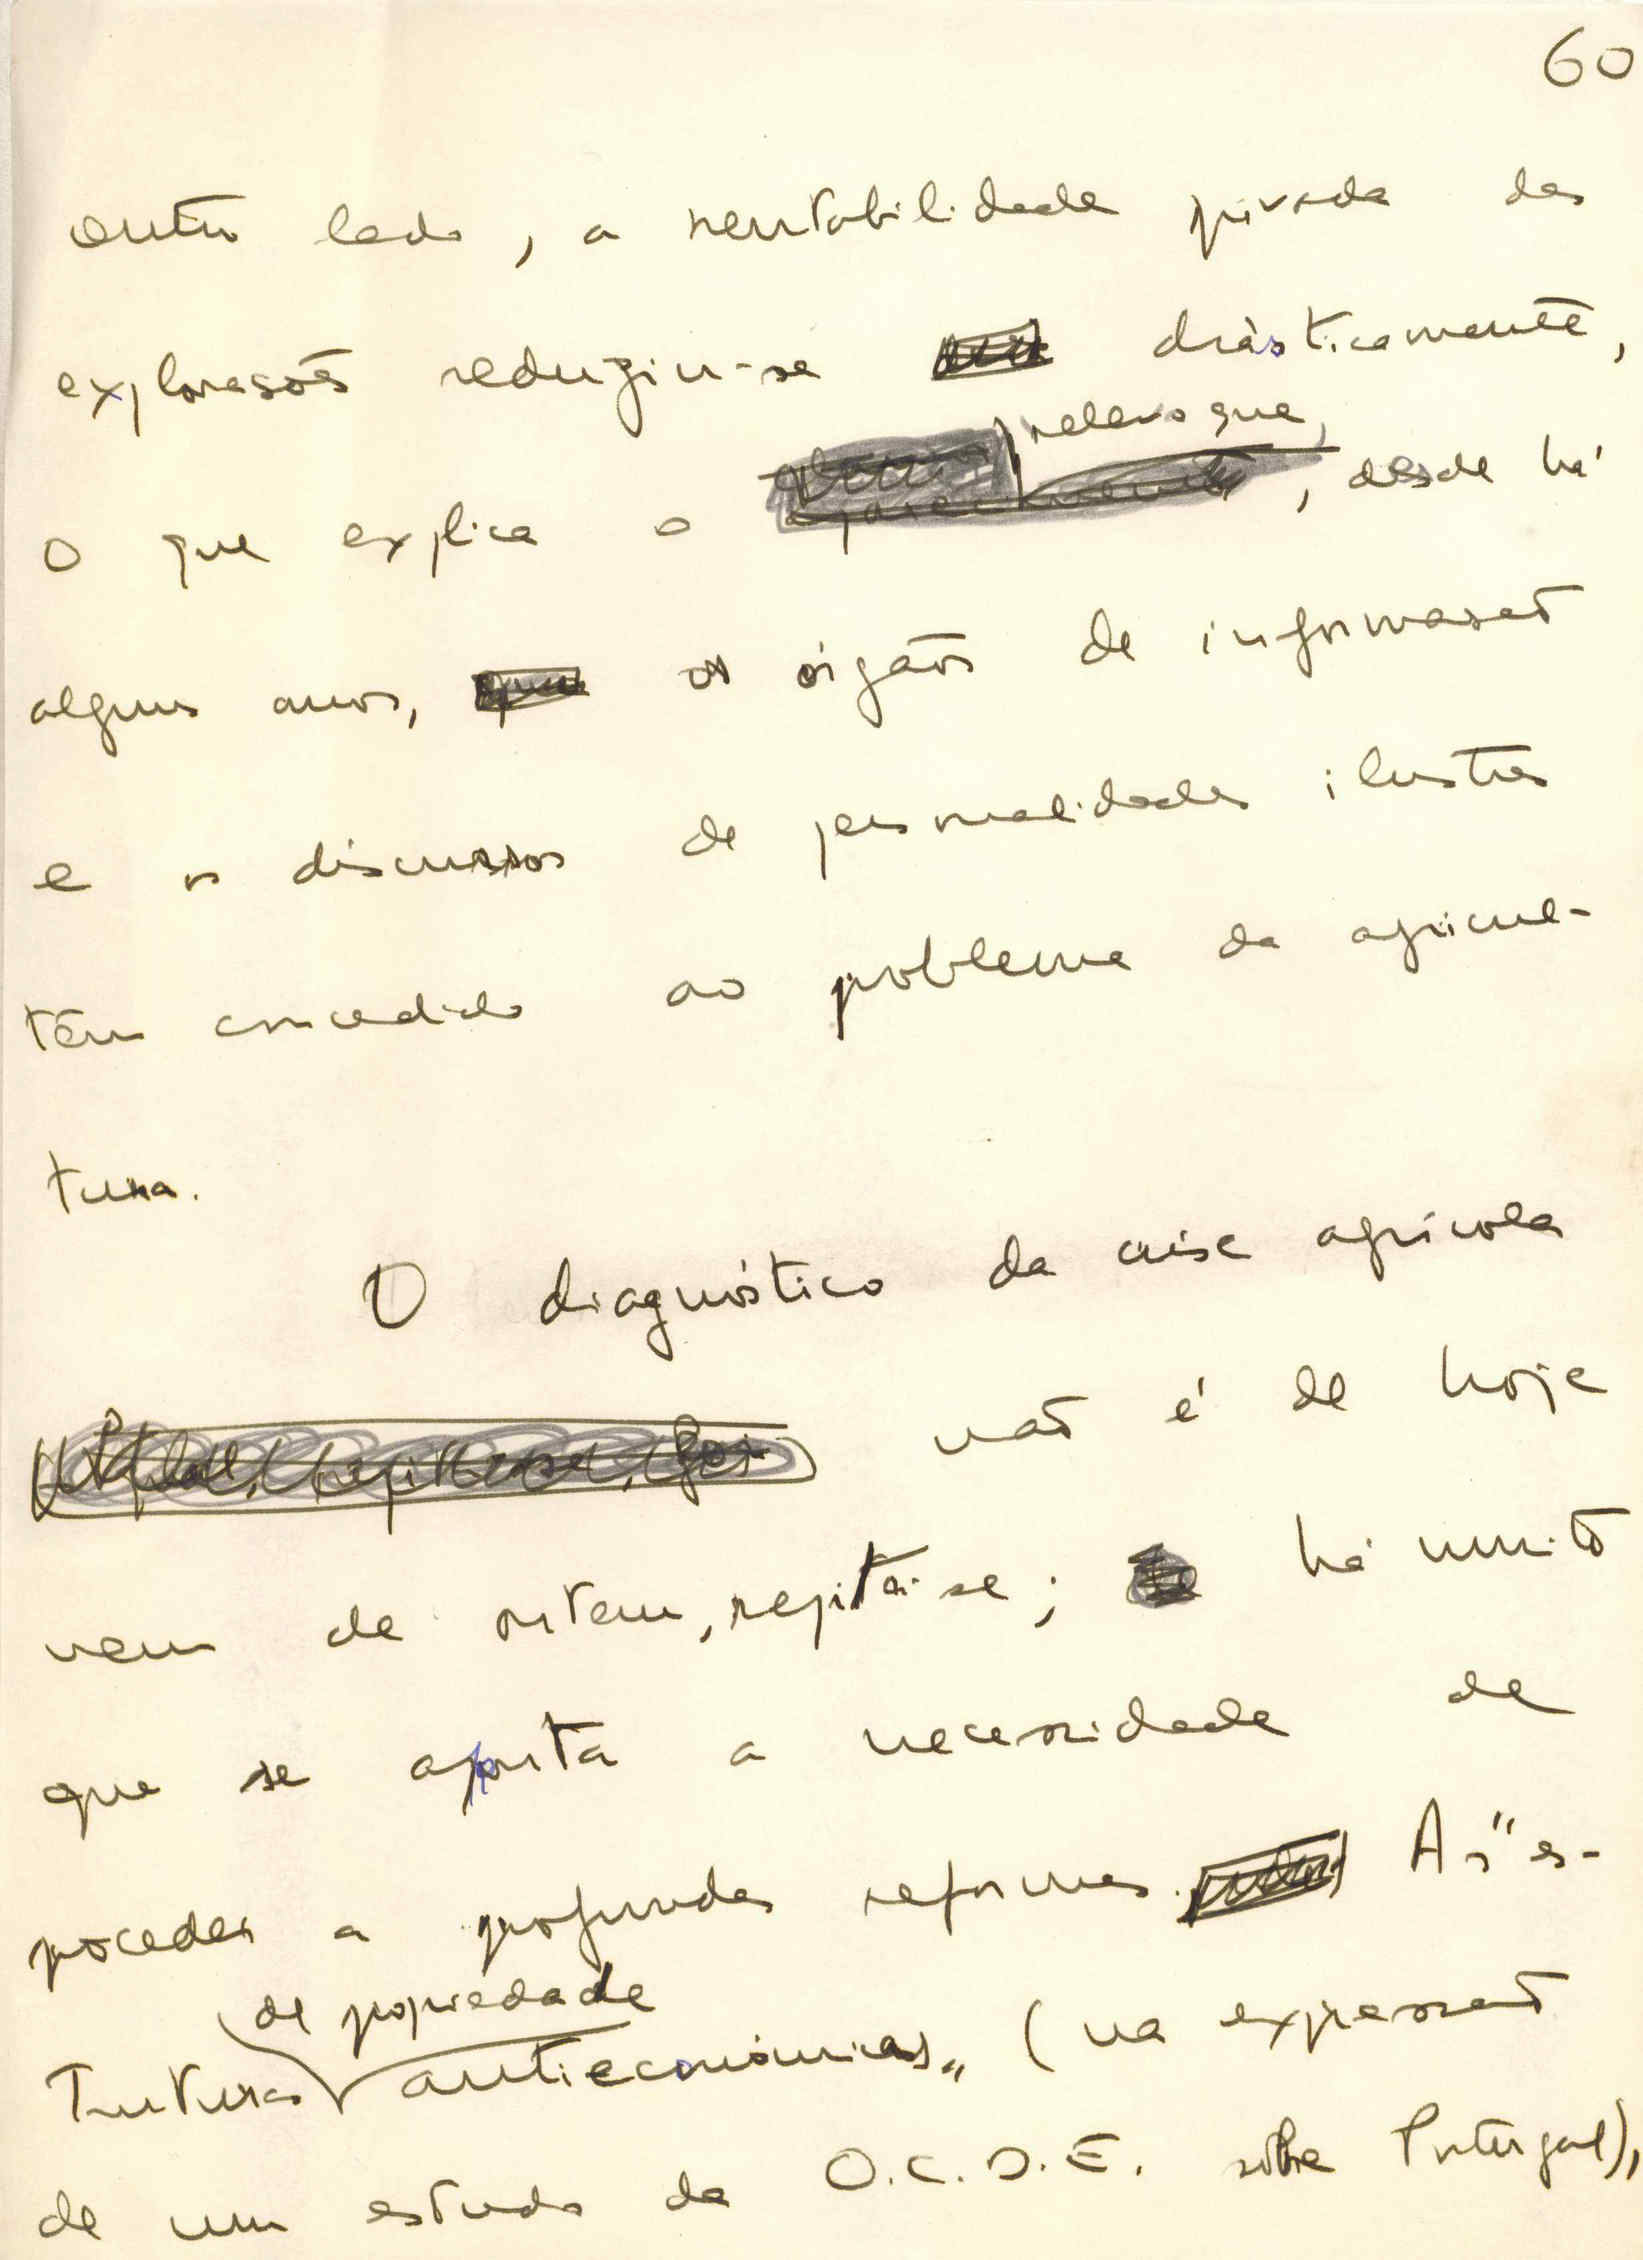 60
outro lado, a rentabilidade privada das
explorações reduziu-se dràsticamente,
relevo que,
o que explica o , desde há
alguns anos, os órgãos de informação
e os discursos de personalidades ilustres
têm concedido ao problema da agricul-
tura.
O diagnóstico da crise agrícola
não é de hoje
nem de ontem, repita-se; há muito
que se aponta a necessidade de
proceder a profundas reformas. As "es-
de propriedade
truturas antieconómicas" (na expressão
de um estudo da O.C.D.E. sôbre Portugal),